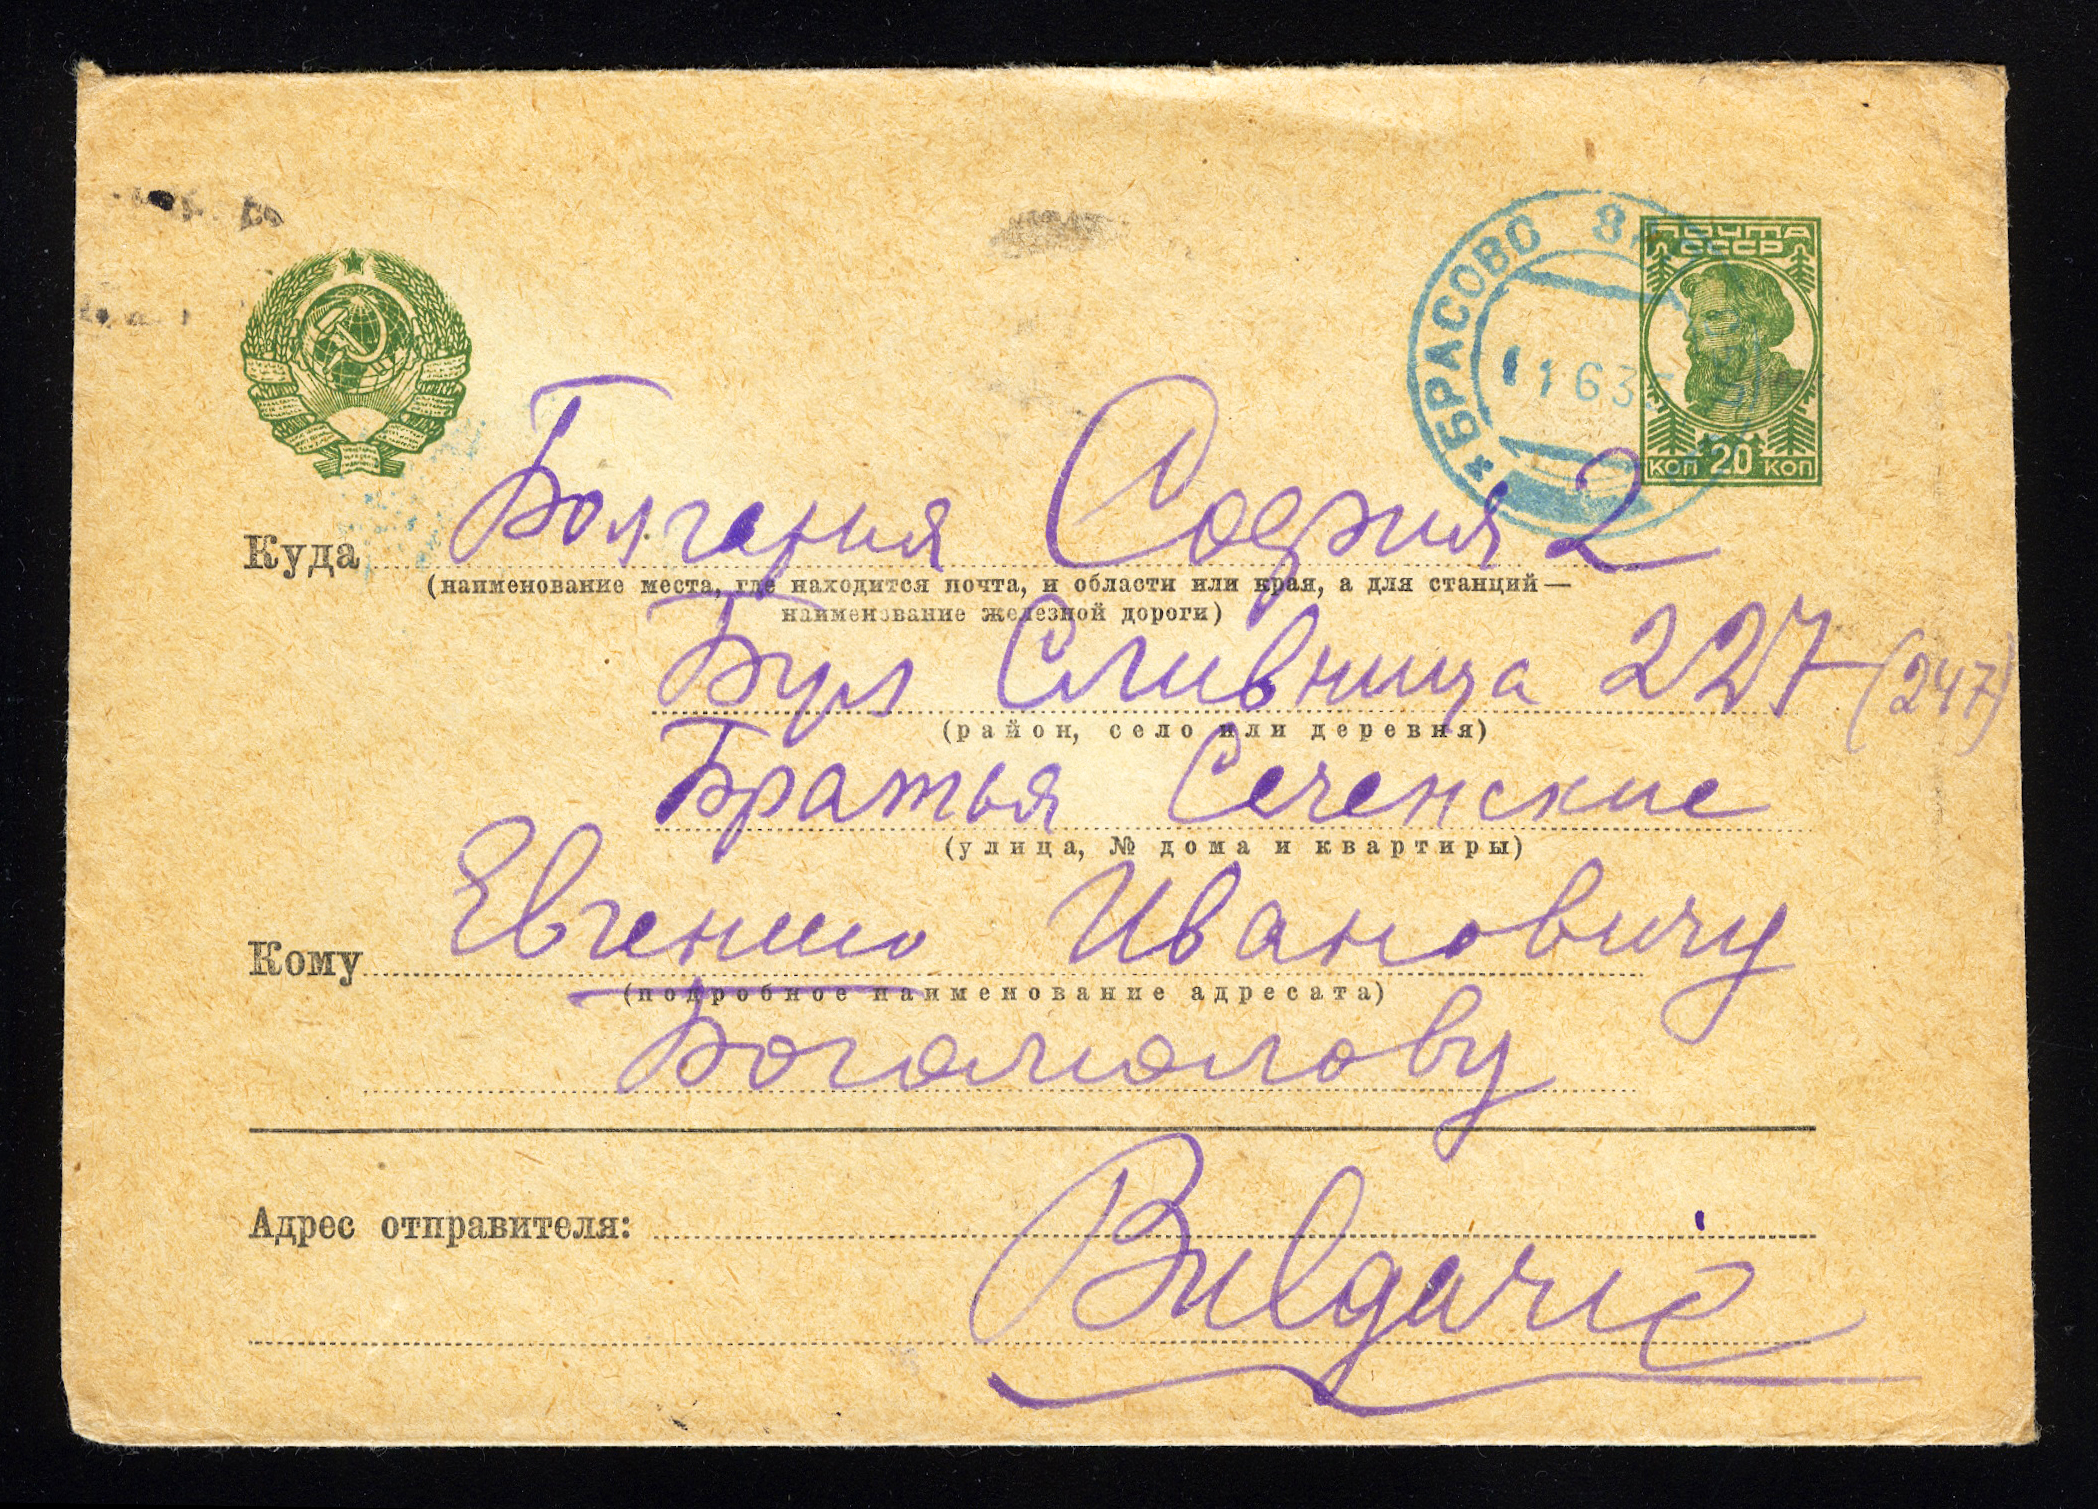 ПОЧТА
СССР
БРАСОВО
11 6 3
КОП 20 КОП
Куда Болгария София 2
(наименование места, где находится почта, и области или края, а для станций—
наименование железной дороги)
Бул Сливница 227 (247)
(район, село или деревня)
Братья Сеченские
(улица, № дома и квартиры)
Кому Евгению Ивановичу
(подробное наименование адресата)
Богомолову
Адрес отправителя:
Bulgarie